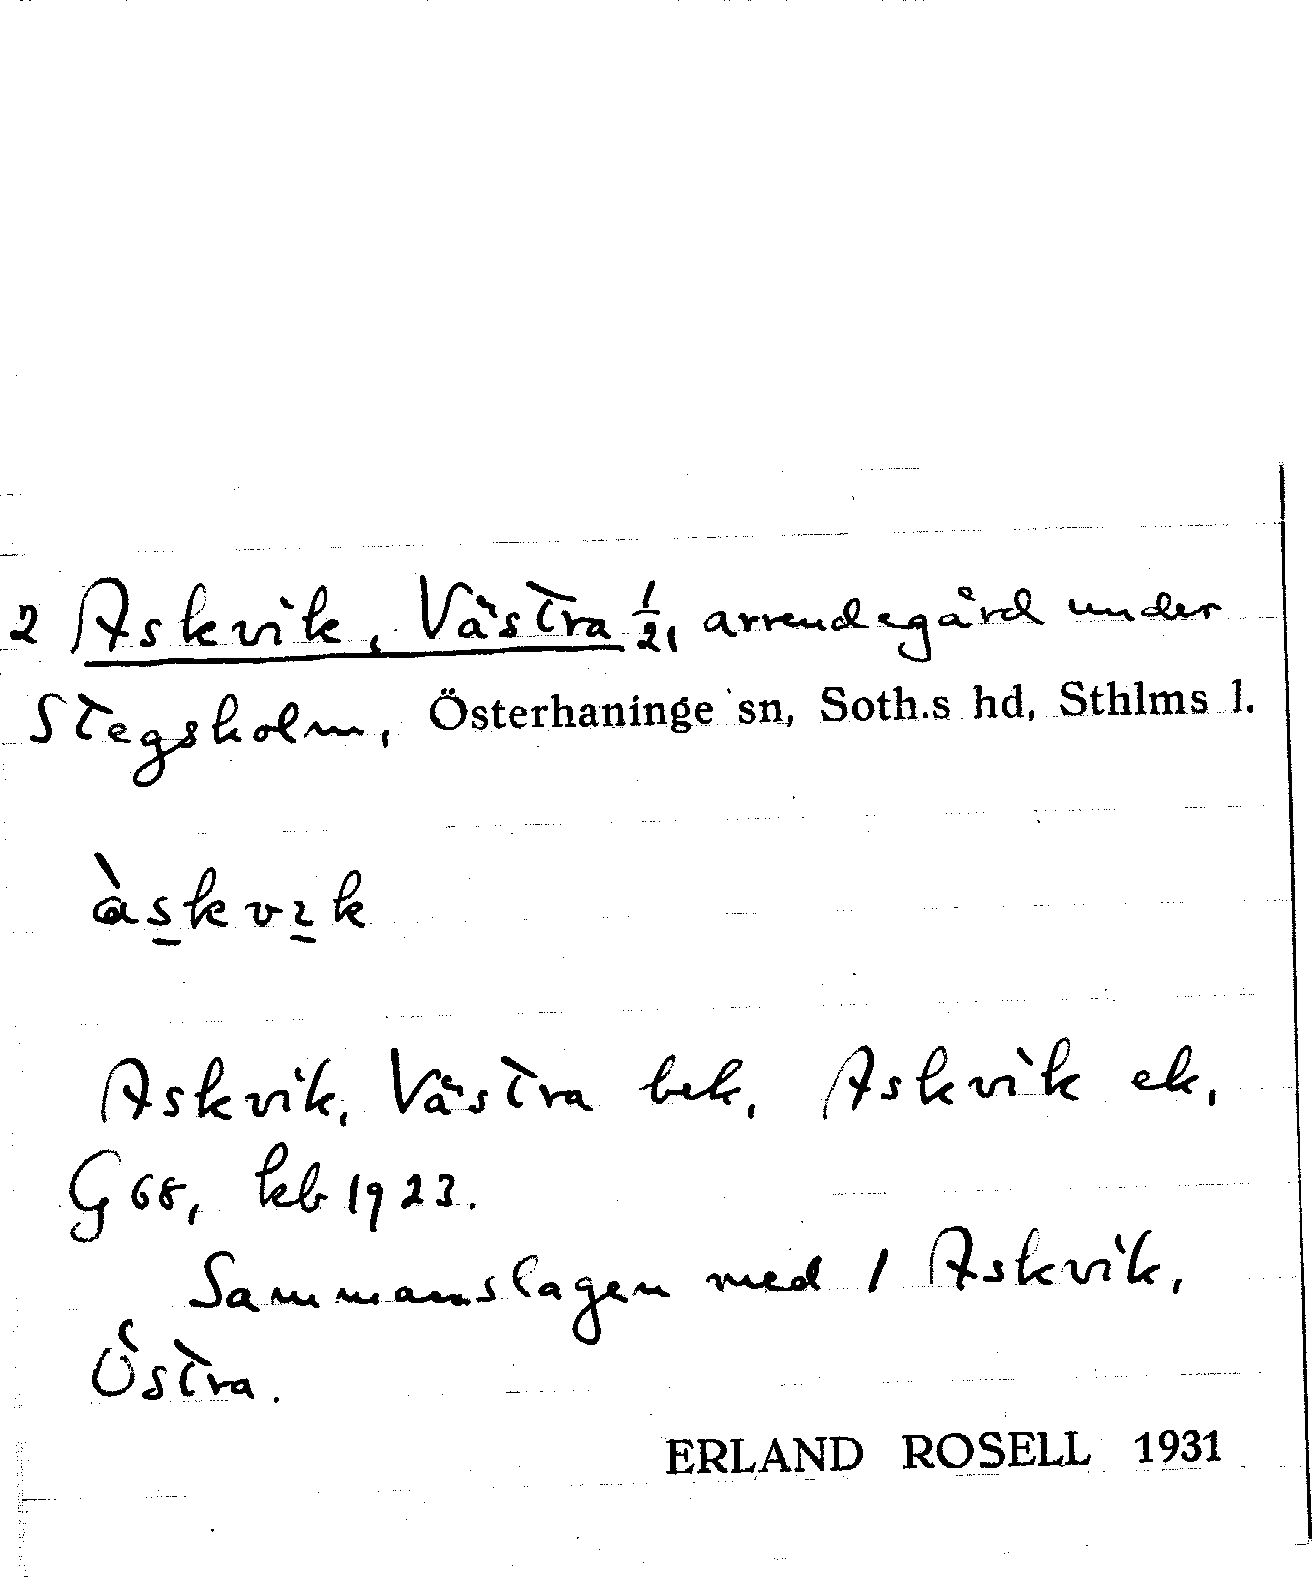 2 Askvik, Västra 1/2, arrendegård under
Stegsholm, Österhaninge sn, Soth.s hd, Sthlms l.
àskvɩk
Askvik, Västra bek, Askvik ek,
G 68, kb 1923.
Sammanslagen med 1 Askvik,
Östra.
ERLAND ROSELL 1931